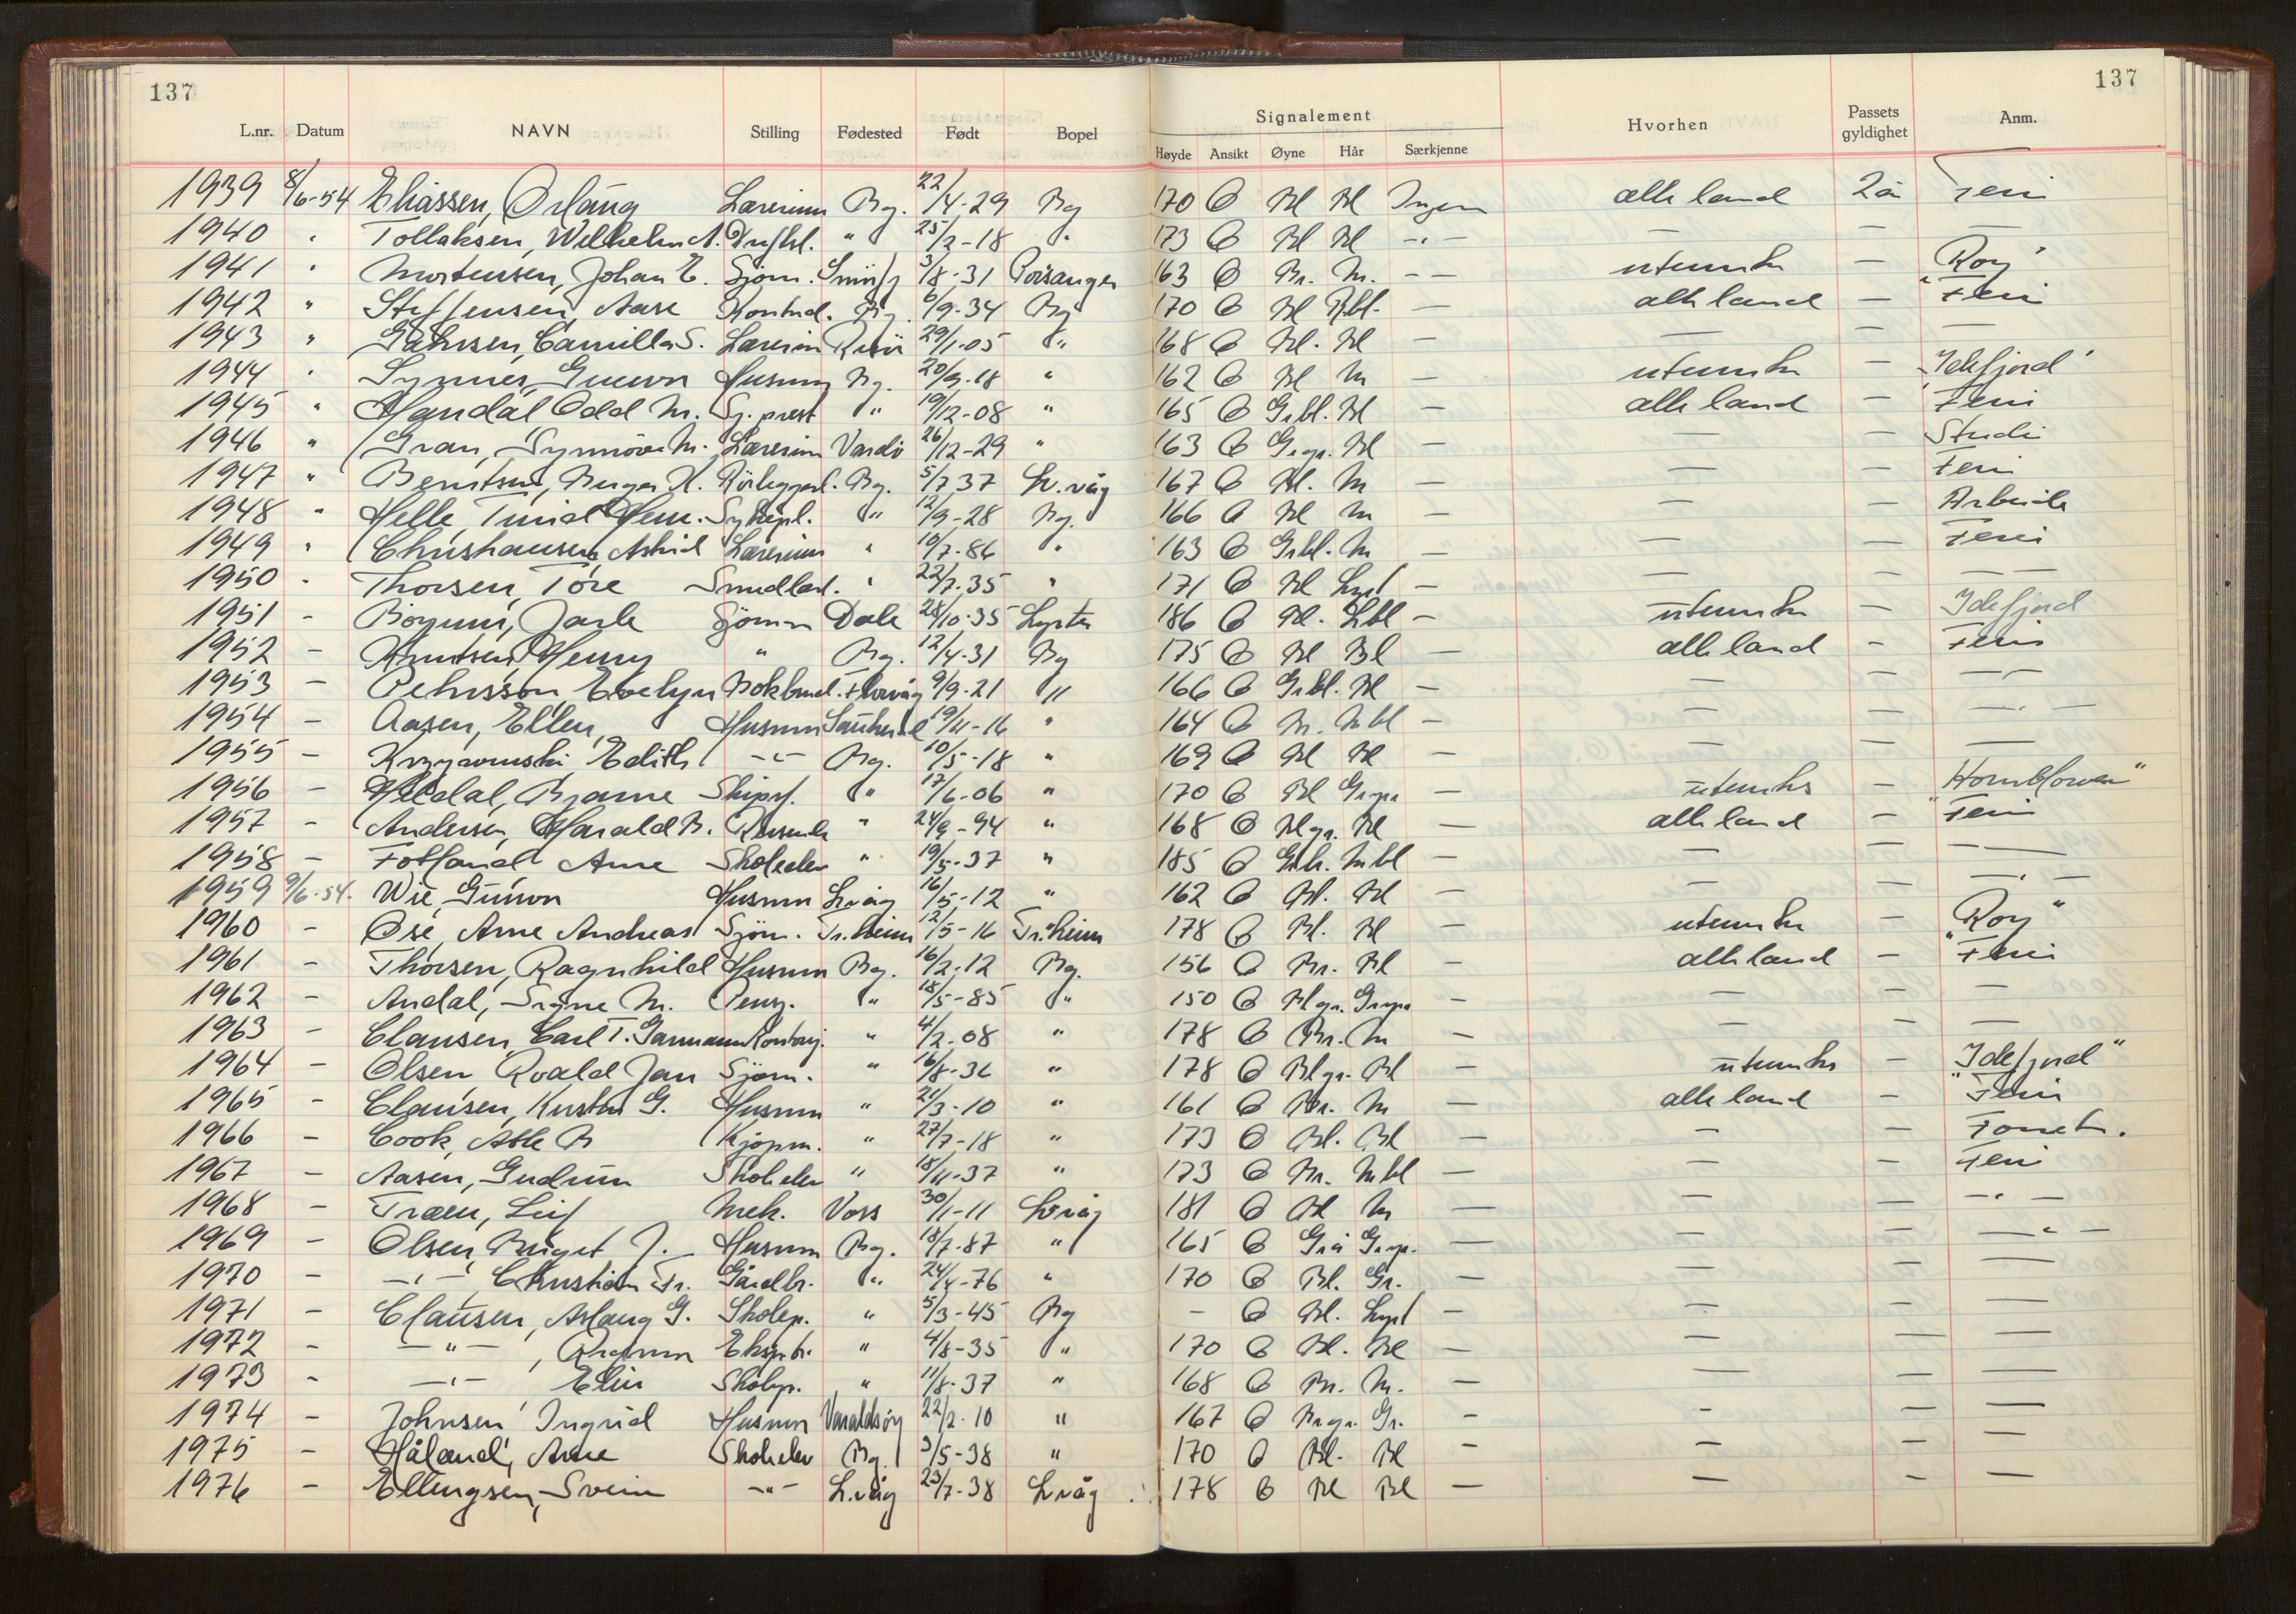 137
137
L.nr. Datum NAVN Stilling Fødested Født Bopel Signalement Hvorhen Passets gyldighet Anm.
Høyde Ansikt Øyne Hår Særkjenne
1939 8/6-54 Eliassen, Ørlaug Lærerinne Bg. 22/4-29 Bg 170 O Bl Bl Ingen alle land 2 år Ferie
1940 " Tollaksen, Wilhelm A. " 25/2-18 " 173 O Bl Bl -"- — — —
1941 " Mortensen, Johan E. Sjøm. 3/8-31 Porsanger 163 O Br. M. -- utenriks — "Roy"
1942 " Steffensen, Aase Kontord. Bg. 6/9-34 Bg 170 O Bl Rbl. — alle land — Ferie
1943 " Camilla S. Lærerin 29/1-05 " 168 O Bl. Bl — — — —
1944 " Synnes, Gunvor Husmor Bg. 20/9-18 " 162 O Bl M — utenriks — "Idefjord"
1945 " Handal Odd M. Sj.prest " 19/12-08 " 165 O Grbl. Bl — alle land — Ferie
1946 " Gran, Synnøve M. Lærerinn Vardö 26/12-29 " 163 O Grgr. Bl — — — Studie
1947 " Berntsen, Birger H. Rørleggerl. Bg. 5/7 37 L.våg 167 O Bl. M — — — Ferie
1948 " Helle, Turid Sykepl. " 12/9-28 Bg. 166 O Bl M — — — Arbeide
1949 " Christiansen, Astrid Lærerinne " 10/7-86 " 163 O Grbl. M — — — Ferie
1950 " Thorsen, Tore " 22/7-35 " 171 O Bl Lyst — — — —
1951 - Böyum, Jarle Sjömn Dale 28/10-35 Lyster 186 O Bl. Lbl — utenriks — Idefjord
1952 - Knutsen, Henry " Bg. 12/4-31 Bg 175 O Bl Bl — alle land - Ferie
1953 - Pehrsson Evelyn Bokbind. Florvåg 9/9-21 " 166 O Grbl. Bl — — — —
1954 - Aasen, Ellen, Husmor 19/11-16 " 164 O Br. Mbl — — — -"-
1955 - Edith -"- Bg. 10/5-18 " 169 O Bl Bl — — — —
1956 - Heldal, Bjarne Skipsf. " 17/6-06 " 170 O Bl Grspr — utenriks — "Hornblower"
1957 - Andersen, Harald B. " 24/9-94 " 168 O Blgr. Bl — alle land — Ferie
1958 - Fotland Arne Skoleelev " 19/5-37 " 185 O Mbl — — — —
1959 9/6-54. Wie, Gunvor Husmor L.våg 16/5-12 " 162 O Bl. Bl — — — -"-
1960 - Öse, Arne Andreas Sjöm. Tr.heim 12/5-16 Tr.heim 178 O Bl. Bl — utenriks — "Roy"
1961 - Thorsen, Ragnhild Husmor Bg. 16/2-12 Bg. 156 O Br. Bl — alle land — Ferie
1962 - Andal, Signe M. Pensj. " 18/5-85 " 150 O Blgr. Grspr — — — —
1963 - Clausen, Carl T. Garmann " 4/2-08 " 178 O Br. M — — — —
1964 - Olsen Roald Jan Sjöm. " 16/8-36 " 178 O Blgr. Bl — utenriks — "Idefjord"
1965 - Clausen, Kirsten G. Husmor " 21/3-10 " 161 O Br. M — alle land - Ferie
1966 - Cook, Atle B Kjøpm. " 27/7-18 " 173 O Bl. Bl — — — Forretn.
1967 - Aasen, Gudrun Skoleelev " 18/11-37 " 173 O Br. Mbl — — — Ferie
1968 - Træen, Leif Mek. Voss 30/1-11 L.våg 181 O Bl M — — — -"-
1969 - Olsen, Birgit J. Husmor Bg. 18/7-87 " 165 O Grå Grspr. — — — -"-
1970 - -"- Christian Fr. Gårdbr. " 24/4-76 " 170 O Bl. Gr. — — — —
1971 - Clausen, Aslaug G. Skolep. " 5/3-45 Bg - O Bl. Lyst — — — —
1972 - -"-, Eksptr. " 4/8-35 " 170 O Bl. Bl — — — —
1973 - -"- Elin Skolep. " 11/8-37 " 168 O Br. M. — — — —
1974 - Johnsen Ingrid Husmor Varaldsöy 22/2-10 " 167 O Brgr. Gr. — — — —
1975 - Håland, Arne Skoleelev Bg. 3/5-38 " 170 O Bl. Bl — — — —
1976 - Ellingsen, Svein -"- L.våg 23/7-38 L.våg 178 O Bl Bl — — — —